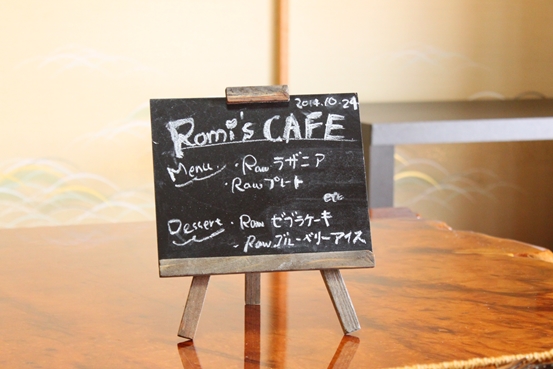 2014.10.24
Romi's CAFE
Menu ・Raw ラザニア
・Raw プレート
etc
Dessert ・Raw ゼブラケーキ
・Raw ブルーベリーアイス